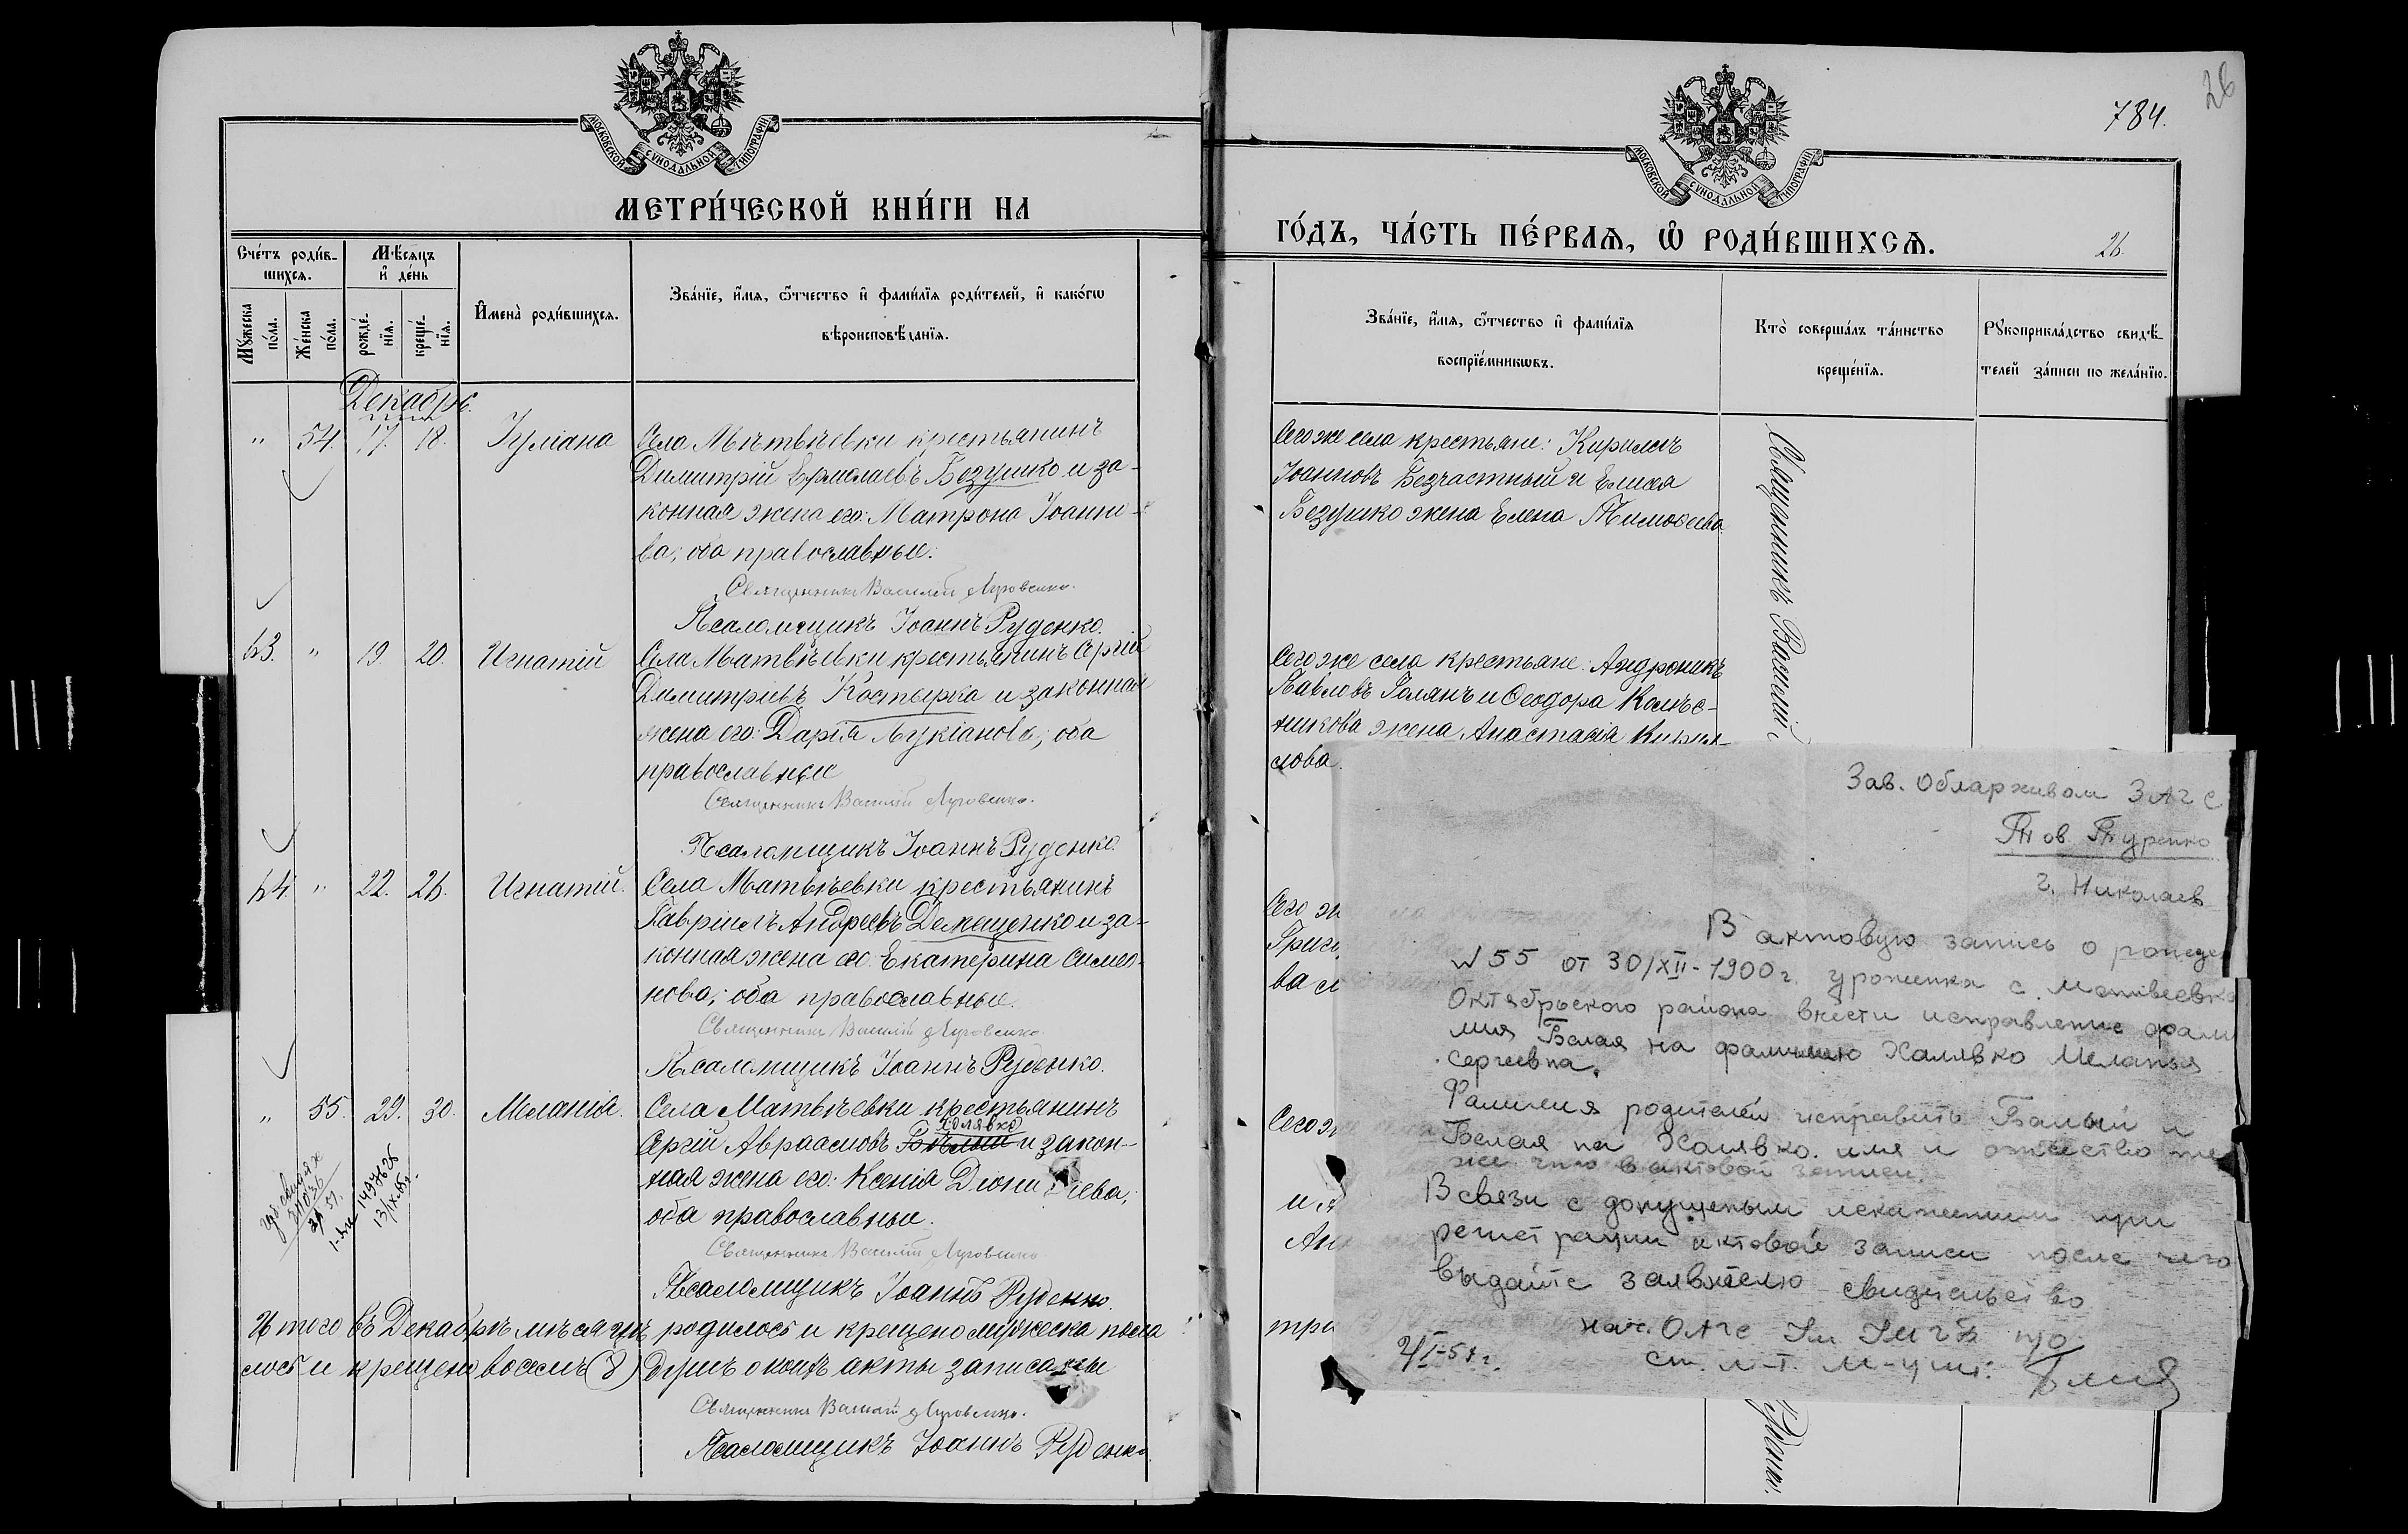 МОСКОВСКОЙ СѴНОДАЛЬНОЙ ТИПОГРАФІИ
МЕТРИ́ЧЕСКОЙ КНИ́ГИ НА
Сче́тъ роди́в-
шихсѧ.
Мѣ́сѧцъ
и҆ де́нь
Мꙋ́жеска
по́ла.
Же́нска
по́ла.
рожде́-
нїѧ.
креще́-
нїѧ.
И҆мена̀ роди́вшихсѧ.
Зва́нїе, и҆́мѧ, ѻ҆́тчество и҆ фами́лїѧ роди́телей, и҆ како́гѡ
вѣроисповѣ́данїѧ.
Декабрь.
" 54. 17. 18. Іуліана
Села Матвѣевки крестьянинъ
Димитрій Ермолаевъ Безушко и за-
конная жена его: Матрона Іоанно-
ва; оба православные.
Священникъ Василій Луговенко.
Псаломщикъ Іоаннъ Руденко.
43. " 19. 20. Игнатій
Села Матвѣевки крестьянинъ Сергій
Димитріевъ Костырка и законная
жена его: Дарія Лукіанова; оба
православные
Священникъ Василій Луговенко.
Псаломщикъ Іоаннъ Руденко.
44. " 22. 26. Игнатій.
Села Матвѣевки крестьянинъ
Гавріилъ Андреевъ Демещенко и за-
конная жена его: Екатерина Симео-
нова; оба православные.
Священникъ Василій Луговенко.
Псаломщикъ Іоаннъ Руденко.
" 55. 29. 30. Меланія.
Села Матвѣевки крестьянинъ
Халявко
Сергій Авраамовъ Бѣлый и закон-
ная жена его: Ксенія Діони іева;
оба православные.
Священникъ Василій Луговенко
Псаломщикъ Іоаннъ Руденко.
Итого въ Декабрѣ мѣсяцѣ родилось и крещено мужеска пола
лось и крещено восемь (8) душъ о коихъ акты записаны
Священникъ Василій Луговенко.
Псаломщикъ Іоаннъ Руденко.
784.
26
МОСКОВСКОЙ СѴНОДАЛЬНОЙ ТИПОГРАФІИ
ГО́ДЪ, ЧА́СТЬ ПЕ́РВАѦ, Ѽ РОДИ́ВШИХСѦ.
26.
Зва́нїе, и҆́мѧ, ѻ҆́тчество и҆ фами́лїѧ
воспрїе́мникѡвъ.
Кто̀ соверша́лъ та́инство
креще́нїѧ.
Рꙋкоприкла́дство свидѣ́-
телей за́писи по жела́нїю.
Сего же села крестьяне: Кириллъ
Іоанновъ Безчастный и Елисея
Безушко жена Елена Тимоѳеева.
Священникъ Василій
Сего же села крестьяне: Андроникъ
Павловъ Голянъ и Ѳеодора Колѣс-
никова жена Анастасія Кирил-
лова.
Сего
Григ
ва
Сего
и
Ан
три
Зав. Обларживом ЗАГС
Тов Туренко
г. Николаев
В актовую запись о рожде
N 55 от 30/XII-1900 г. уроженка с. Матвеевка
Октябрьского района внести исправление фами
лия Белая на фамилию Халявко Меланья
Сергеевна.
Фамилия родителей исправить Белый и
Белая на Халявко. имя и отчество те
же что в актовой записи.
В связи с допущеным искажением при
регистрации актовой записи после чего
выдайте заявителю свидетельство
нач. ОАГС
ст. л-т. М-ции: